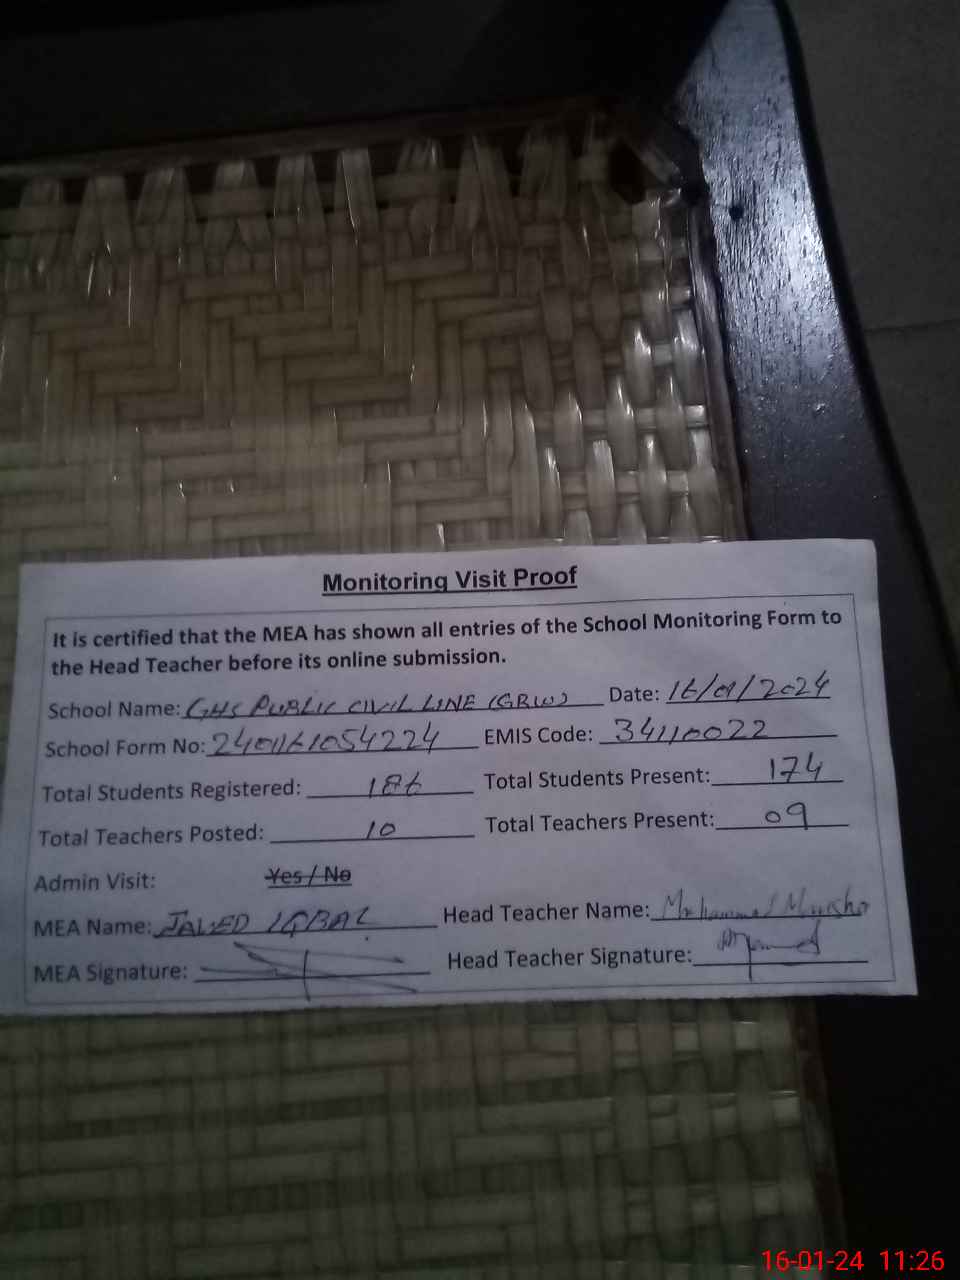 Monitoring Visit Proof
It is certified that the MEA has shown all entries of the School Monitoring Form to
the Head Teacher before its online submission.
School Name: GHS PUBLIC CIVIL LINE (GRW) Date: 16/01/2024
School Form No: 2401161054224 EMIS Code: 34110022
Total Students Registered: 186 Total Students Present: 174
Total Teachers Posted: 10 Total Teachers Present: 09
Admin Visit: Yes / No
MEA Name: JAVED IQBAL Head Teacher Name: Muhammad
MEA Signature: Head Teacher Signature:
16-01-24 11:26